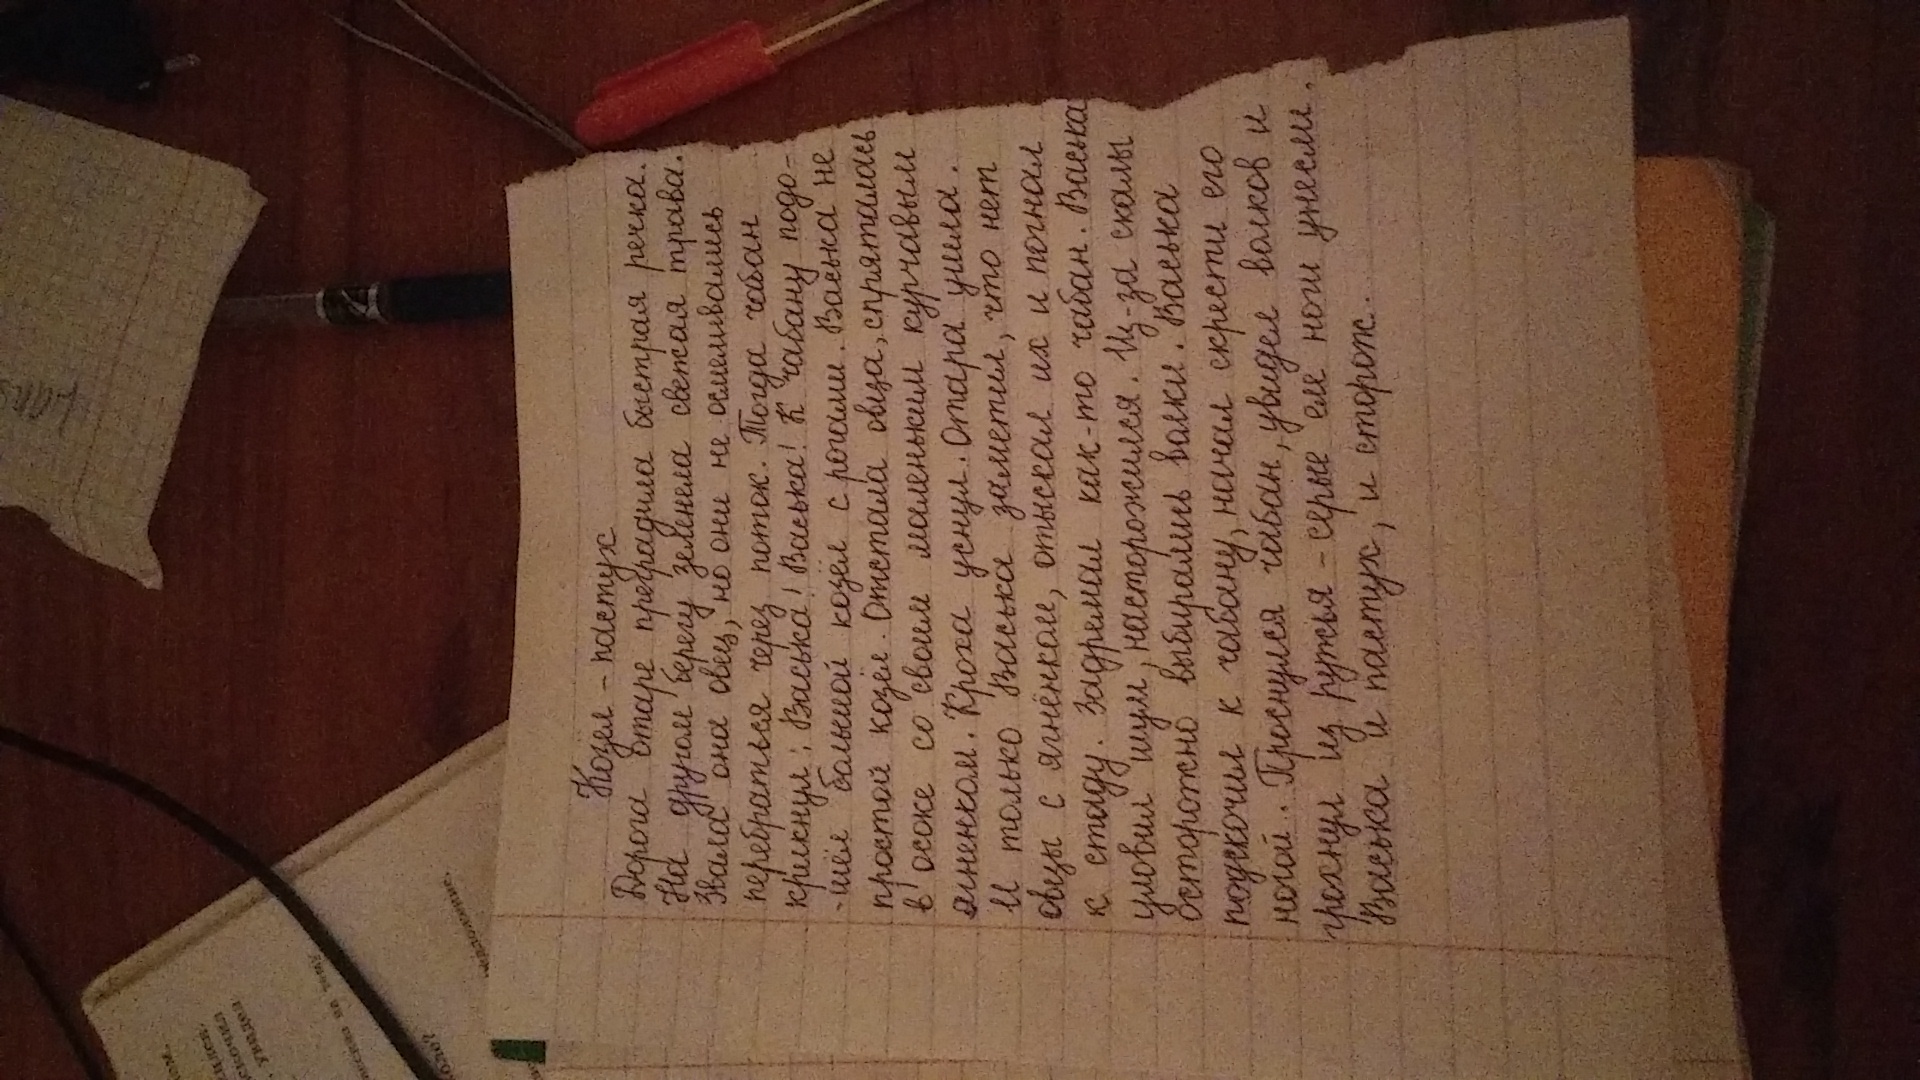 Козёл - пастух
Дорогу отаре преградила быстрая речка.
На другом берегу зеленела свежая трава.
Звала она овец, но они не осмеливались
перебраться через поток. Тогда чабан
крикнул: Васька! Васька! К чабану подо-
-шёл большой козёл с рогами. Васька не
простой козёл. Отстала овца, спряталась
в оске со своим маленьким курчавым
ягненком. Кроха уснул. Отара ушла.
И только Васька заметил, что нет
овцы с ягнёнком, отыскал их и погнал
к стаду. Задремал как-то чабан. Васька
уловил шум, насторожился. Из-за скалы
осторожно выбирались волки. Васька
подскочил к чабану, начал скрести его
ногой. Проснулся чабан, увидел волков и
грохнул из ружья - серые еле ноги унесли.
Васька и пастух, и сторож.